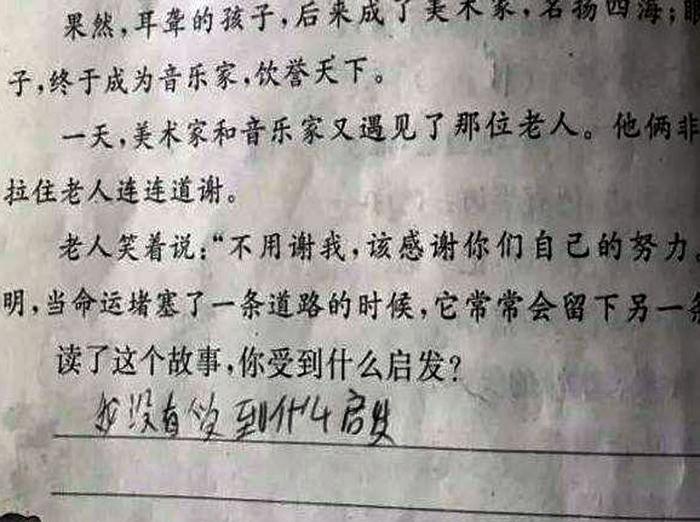 果然,耳聋的孩子,后来成了美术家,名扬四海;眼
子,终于成为音乐家,饮誉天下。
一天,美术家和音乐家又遇见了那位老人。他俩非
拉住老人连连道谢。
老人笑着说:“不用谢我,该感谢你们自己的努力。
明,当命运堵塞了一条道路的时候,它常常会留下另一条
读了这个故事,你受到什么启发?
我没有受到什么启发